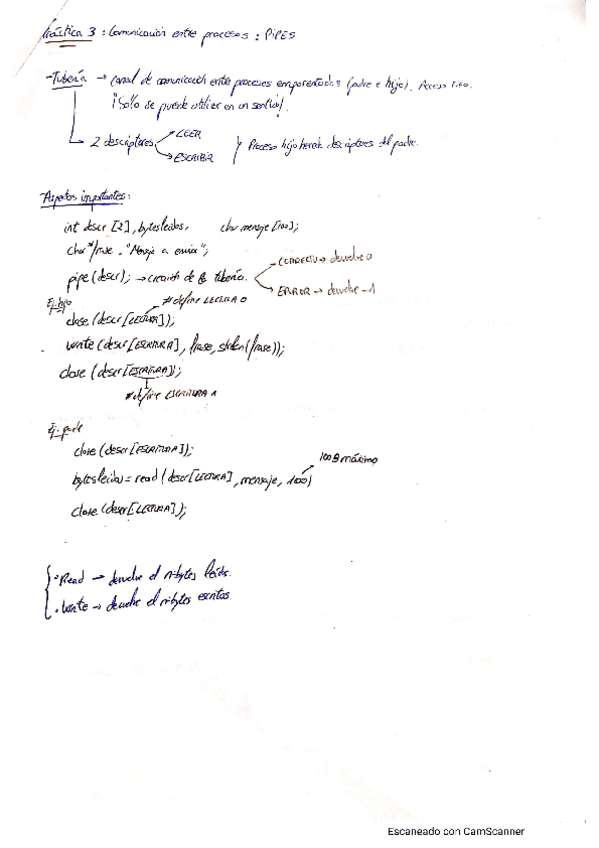 Práctica 3 : Comunicación entre procesos : PIPES
-Tubería → Canal de comunicación entre procesos emparentados (padre e hijo). Acceso FIFO.
¡Sólo se puede utilizar en un sentido!.
2 descriptores
LEER
ESCRIBIR
Proceso hijo hereda descriptores del padre.
-Aspectos importantes:
int descr [2], bytesleidos, char mensaje [100];
char */frase = "Mensaje a enviar";
pipe (descr); → creación de la tubería.
CORRECTO → devuelve 0
ERROR → devuelve -1
Ej. hijo
#define LECTURA 0
close (descr[LECTURA]);
write (descr[ESCRITURA], frase, strlen(frase));
close (descr[ESCRITURA]);
#define ESCRITURA 1
Ej. padre
close (descr[ESCRITURA]);
100B máximo
bytesleidos = read (descr[LECTURA], mensaje, 100)
close (descr[LECTURA]);
• Read → devuelve el nºbytes leídos.
• Write → devuelve el nºbytes escritos.
Escaneado con CamScanner